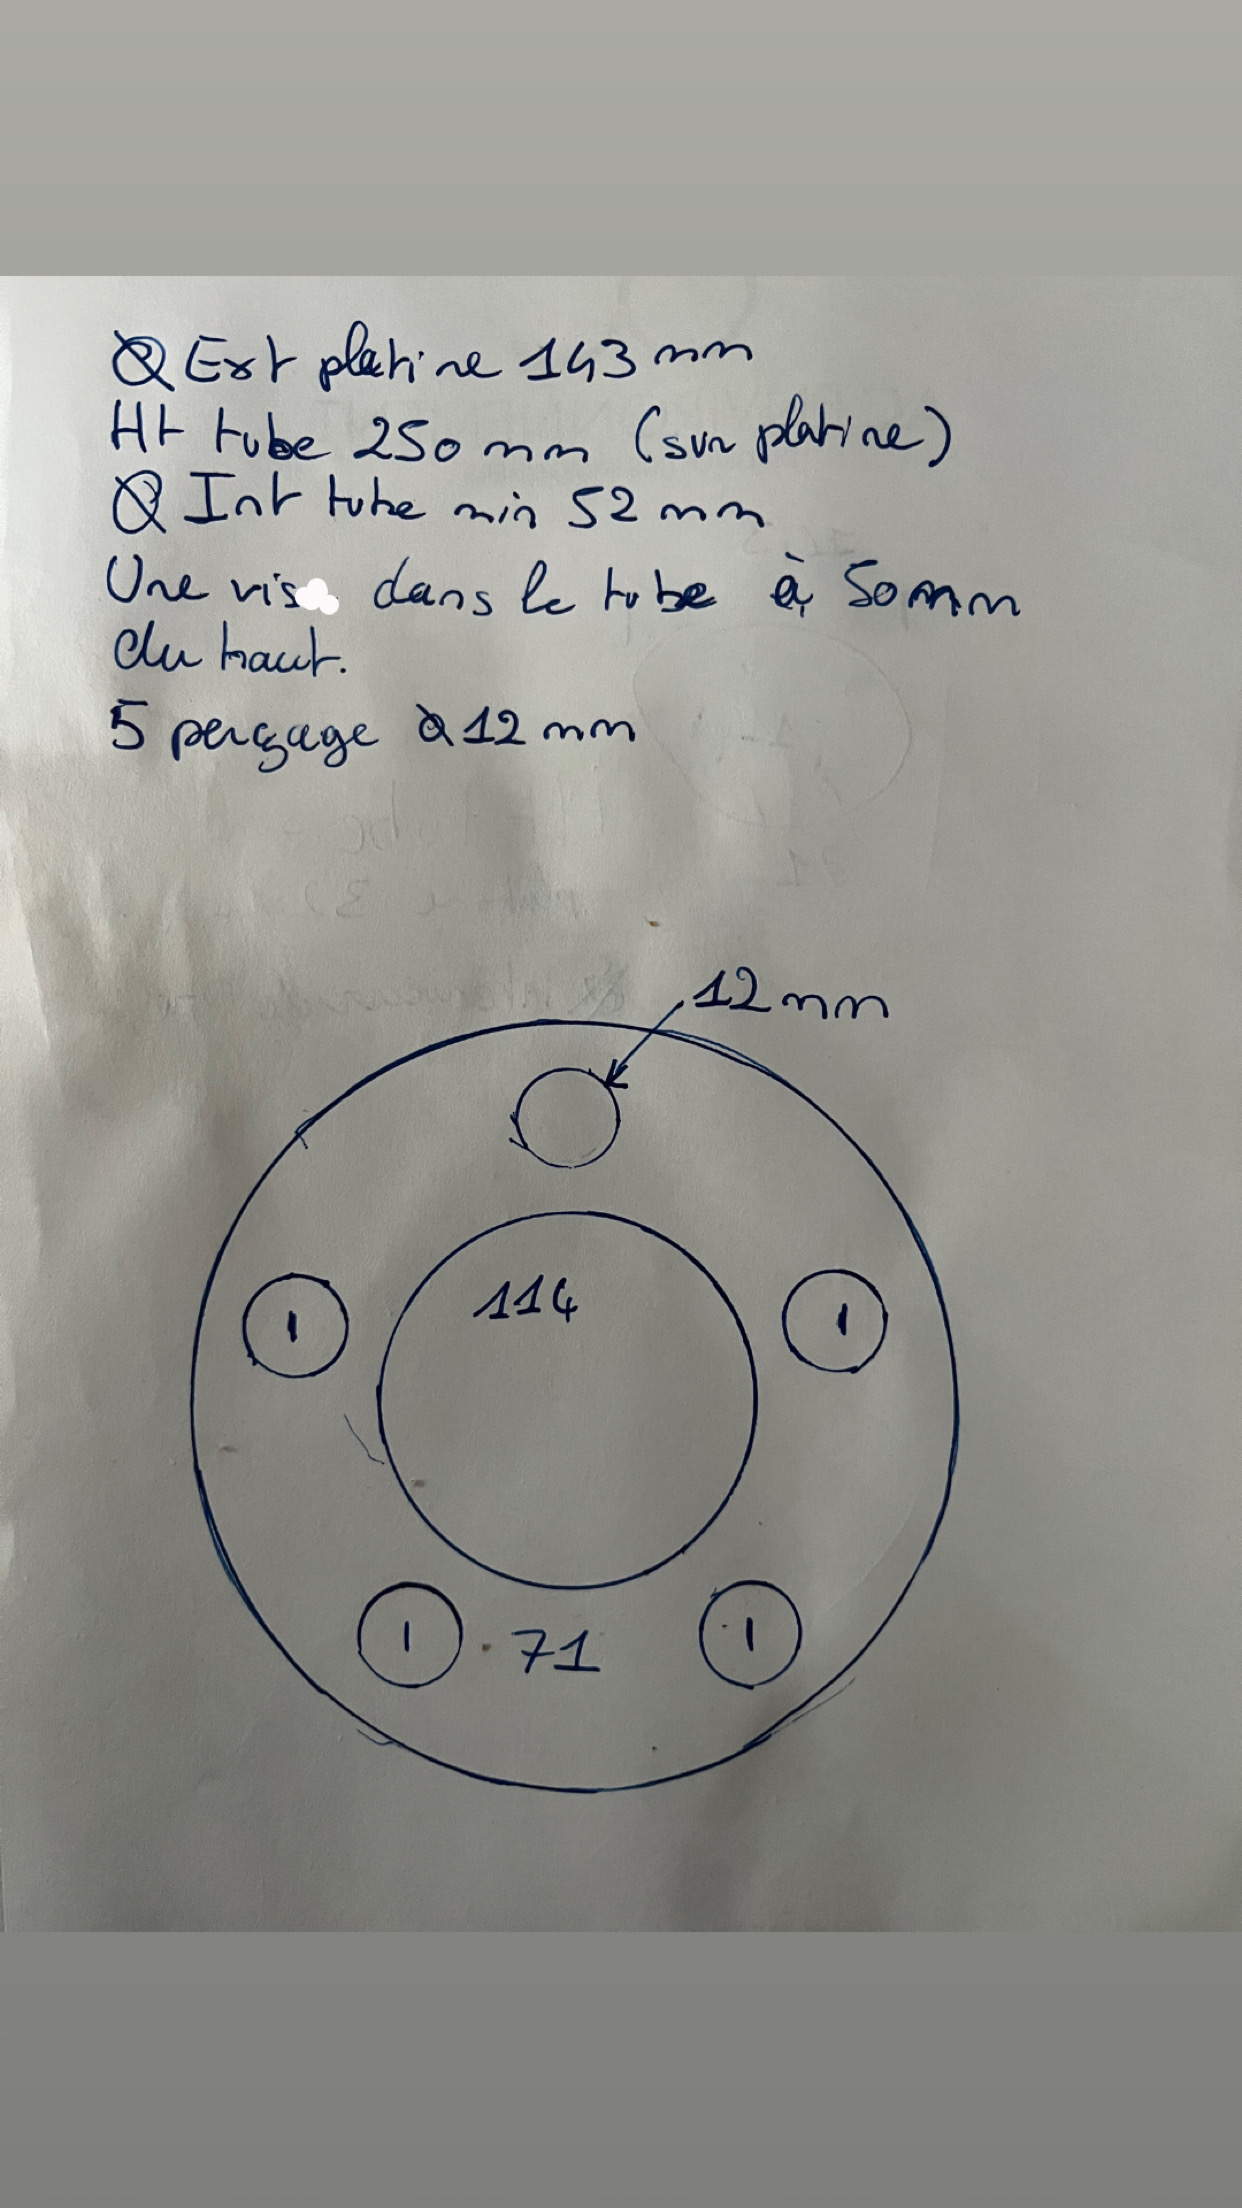 Ø Ext platine 143 mm
Ht tube 250 mm (sur platine)
Ø Int tube min 52 mm
Une vis dans le tube à 50 mm
du haut.
5 perçage Ø 12 mm
12 mm
114
71